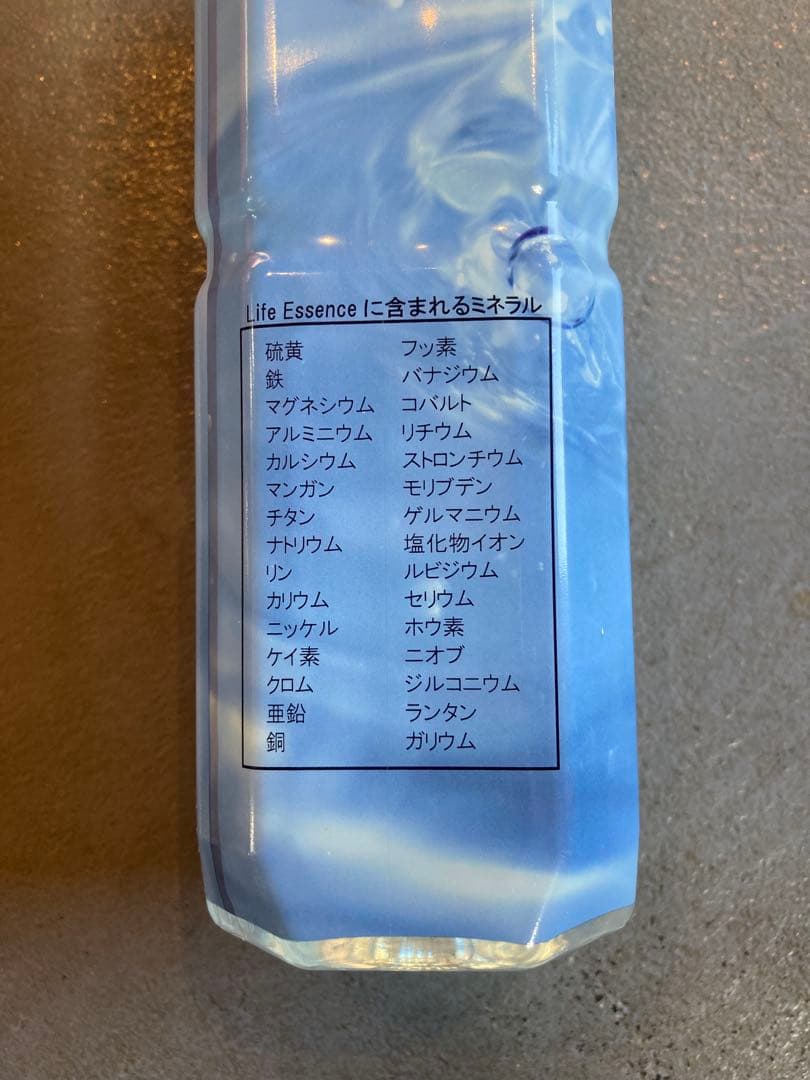 Life Essence に含まれるミネラル
硫黄
鉄
マグネシウム
アルミニウム
カルシウム
マンガン
チタン
ナトリウム
リン
カリウム
ニッケル
ケイ素
クロム
亜鉛
銅
フッ素
バナジウム
コバルト
リチウム
ストロンチウム
モリブデン
ゲルマニウム
塩化物イオン
ルビジウム
セリウム
ホウ素
ニオブ
ジルコニウム
ランタン
ガリウム